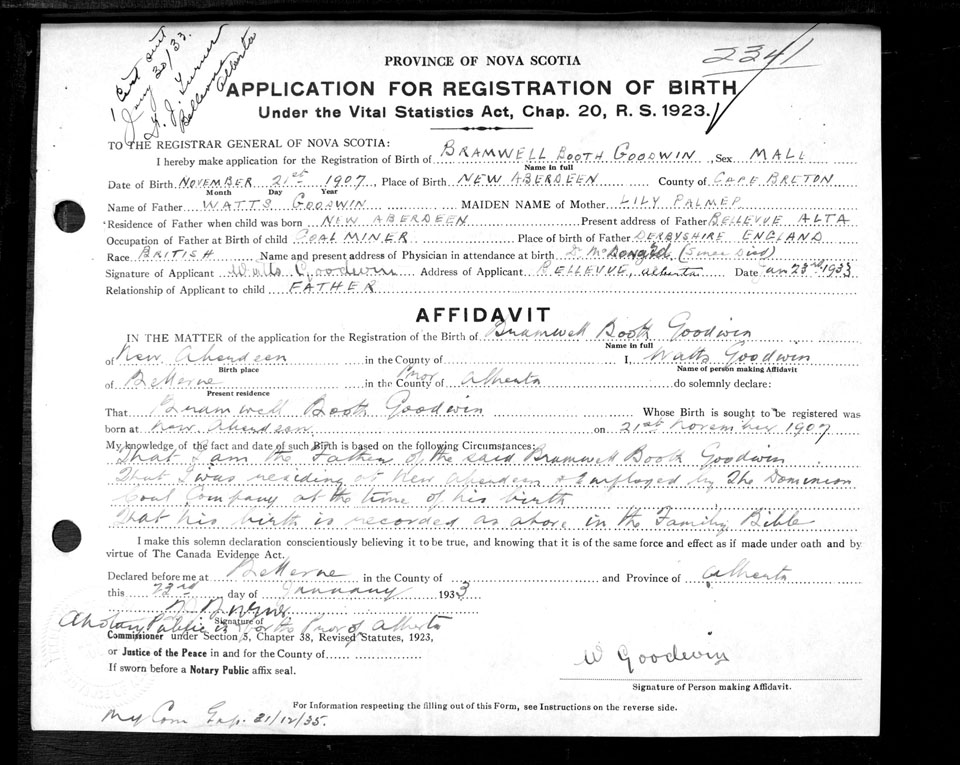 Cert out
Jany 30/33.
Turner
Bellevue
Alberta
2341
PROVINCE OF NOVA SCOTIA
APPLICATION FOR REGISTRATION OF BIRTH
Under the Vital Statistics Act, Chap. 20, R. S. 1923.
TO THE REGISTRAR GENERAL OF NOVA SCOTIA:
I hereby make application for the Registration of Birth of BRAMWELL BOOTH GOODWIN, Sex MALE
Name in full
Date of Birth NOVEMBER 21st 1907, Place of Birth NEW ABERDEEN County of CAPE BRETON
Month Day Year
Name of Father WATTS GOODWIN MAIDEN NAME of Mother LILY PALMER
Residence of Father when child was born NEW ABERDEEN Present address of Father BELLEVUE ALTA
Occupation of Father at Birth of child COAL MINER Place of birth of Father DERBYSHIRE ENGLAND
Race BRITISH Name and present address of Physician in attendance at birth Dr McDonald (Since Died)
Signature of Applicant Watts Goodwin Address of Applicant BELLEVUE, Alberta Date Jan 23rd 1933
Relationship of Applicant to child FATHER
AFFIDAVIT
IN THE MATTER of the application for the Registration of the Birth of Bramwell Booth Goodwin
Name in full
of New Aberdeen in the County of I, Watts Goodwin
Birth place Name of person making Affidavit
of Bellevue in the County of Prov Alberta do solemnly declare:
Present residence
That Bramwell Booth Goodwin Whose Birth is sought to be registered was
born at New Aberdeen on 21st November 1907
My knowledge of the fact and date of such Birth is based on the following Circumstances:
That I am the Father of the said Bramwell Booth Goodwin
That I was residing at New Aberdeen & Employed by The Dominion
Coal Company at the time of his birth
That his birth is recorded as above in the Family Bible
I make this solemn declaration conscientiously believing it to be true, and knowing that it is of the same force and effect as if made under oath and by
virtue of The Canada Evidence Act.
Declared before me at Bellevue in the County of and Province of Alberta
this 23rd day of January 1933
Turner
Signature of
A Notary Public in & for the Prov of Alberta
Commissioner under Section 5, Chapter 38, Revised Statutes, 1923,
or Justice of the Peace in and for the County of
If sworn before a Notary Public affix seal.
W Goodwin
Signature of Person making Affidavit.
For Information respecting the filling out of this Form, see Instructions on the reverse side.
My Com Exp. 31/12/35.